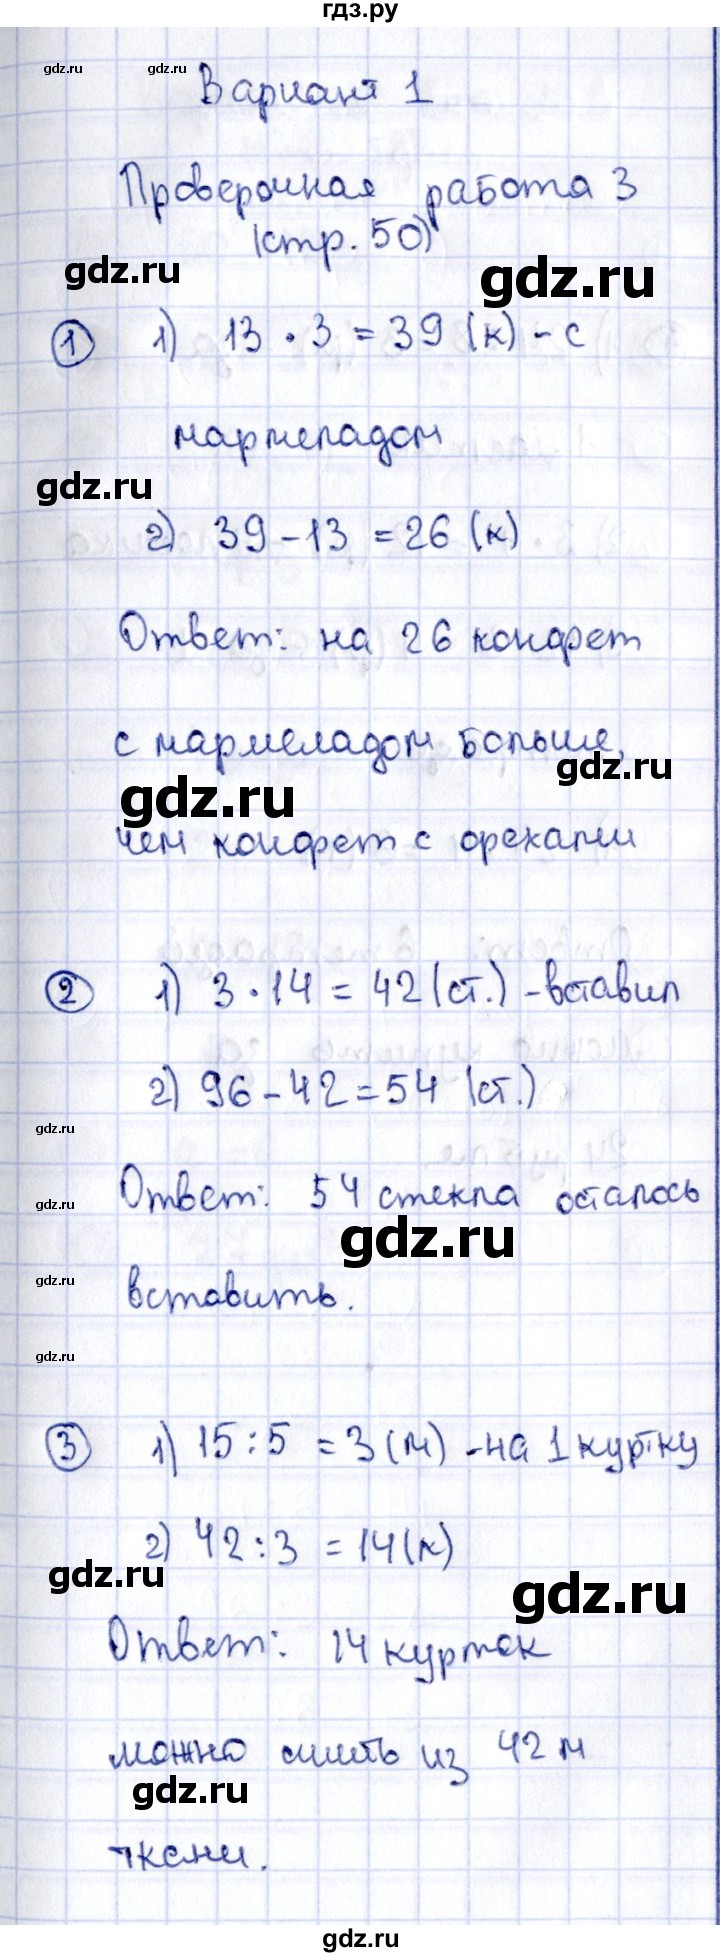 гдз.ру
gdz.ru gdz.ru
Вариант 1
Проверочная работа 3
(стр. 50)
gdz.ru gdz.ru
① 1) 13 · 3 = 39 (к) - с
мармеладом
gdz.ru
2) 39 - 13 = 26 (к)
Ответ: на 26 конфет
с мармеладом больше,
gdz.ru
gdz.ru
чем конфет с орехами
② 1) 3 · 14 = 42 (ст.) - вставил
2) 96 - 42 = 54 (ст.)
gdz.ru
Ответ: 54 стекла осталось
gdz.ru
gdz.ru
gdz.ru
вставить.
gdz.ru
③ 1) 15 : 5 = 3 (м) - на 1 куртку
2) 42 : 3 = 14 (к)
gdz.ru
gdz.ru
Ответ: 14 курток
можно сшить из 42 м
gdz.ru
ткани.
gdz.ru